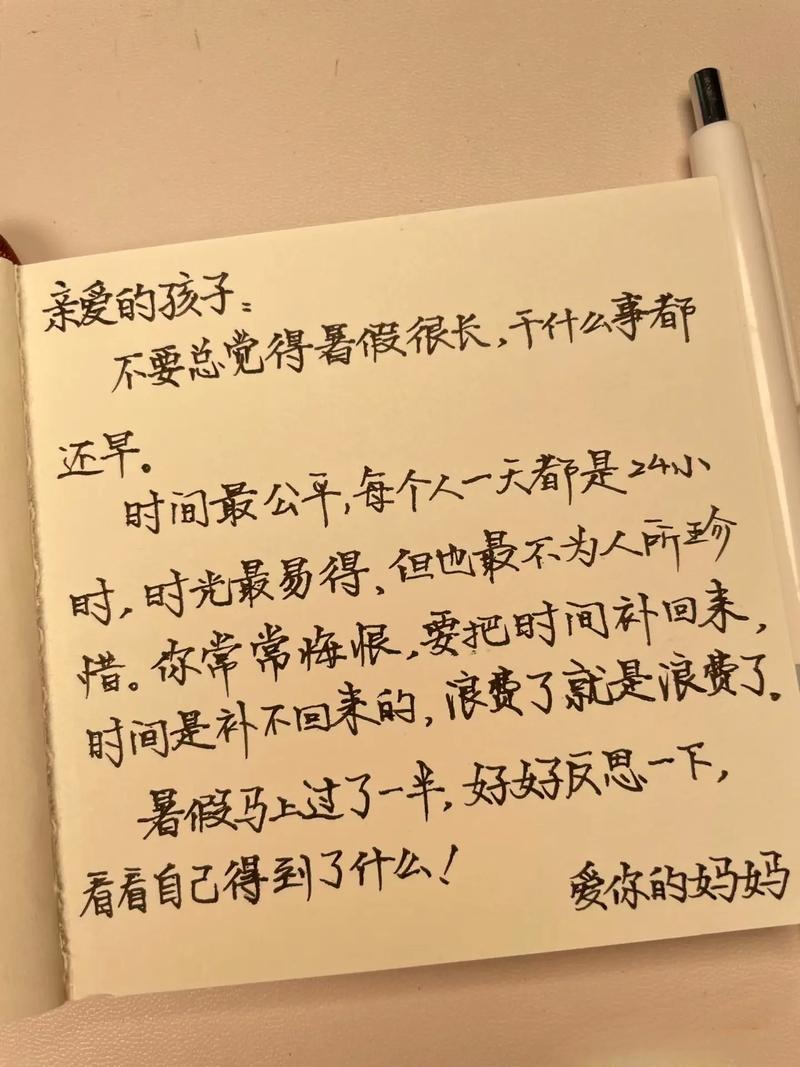 亲爱的孩子：
不要总觉得暑假很长，干什么事都
还早。
时间最公平，每个人一天都是24小
时，时光最易得，但也最不为人所珍
惜。你常常悔恨，要把时间补回来，
时间是补不回来的，浪费了就是浪费了。
暑假马上过了一半，好好反思一下，
看看自己得到了什么！
爱你的妈妈